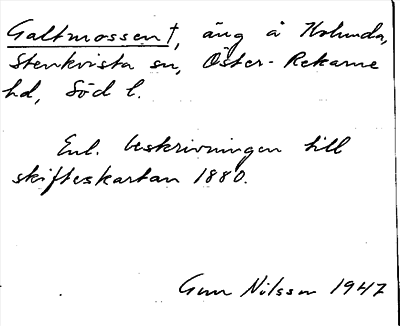 Galtmossen†, äng å Holunda,
Stenkvista sn, Öster-Rekarne
hd, Söd l.
Enl. beskrivningen till
skifteskartan 1880.
Gun Nilsson 1947